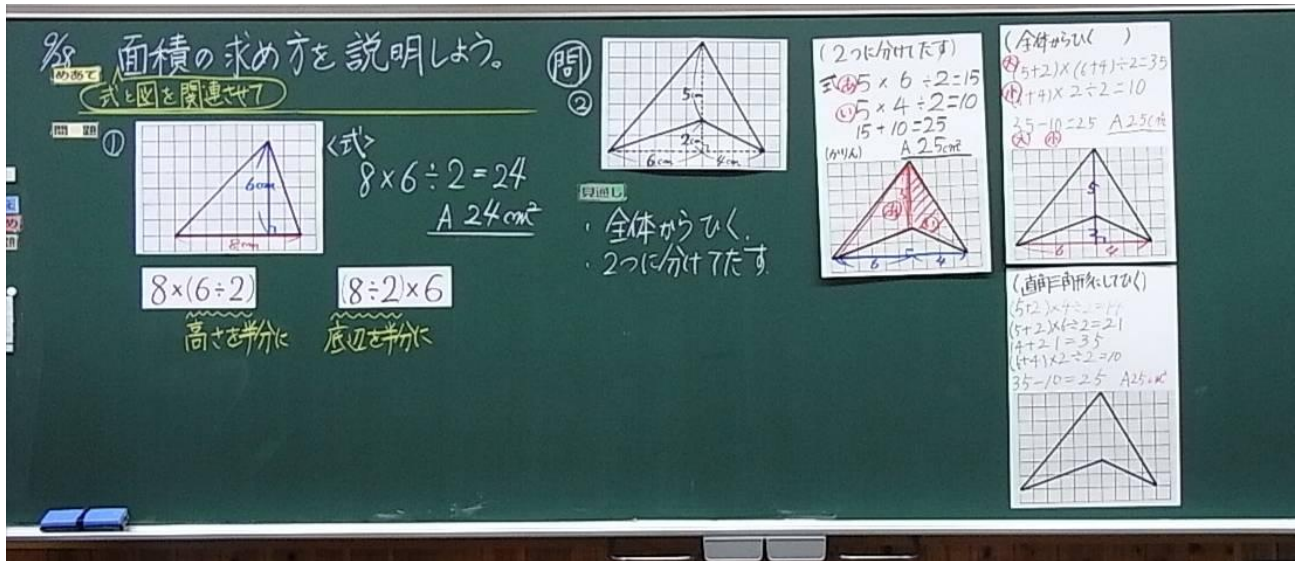 9/28 面積の求め方を説明しよう。
めあて
式と図を関連させて
問題
①
6cm
8cm
<式>
8×6÷2=24
A 24cm²
8×(6÷2)
高さを半分に
(8÷2)×6
底辺を半分に
問
②
5cm
2cm
6cm
4cm
見通し
・全体からひく。
・2つに分けてたす。
(2つに分けてたす)
式 あ 5×6÷2=15
い 5×4÷2=10
15+10=25
(かりん)
A 25cm²
あ
い
6
4
(全体からひく )
大 5+2)×(6+4)÷2=35
小 +4)×2÷2=10
35-10=25 A25cm²
大 小
5
2
6
4
(直角三角形にしてひく)
(5+2)×4÷2=14
(5+2)×6÷2=21
14+21=35
(6+4)×2÷2=10
35-10=25 A25cm²